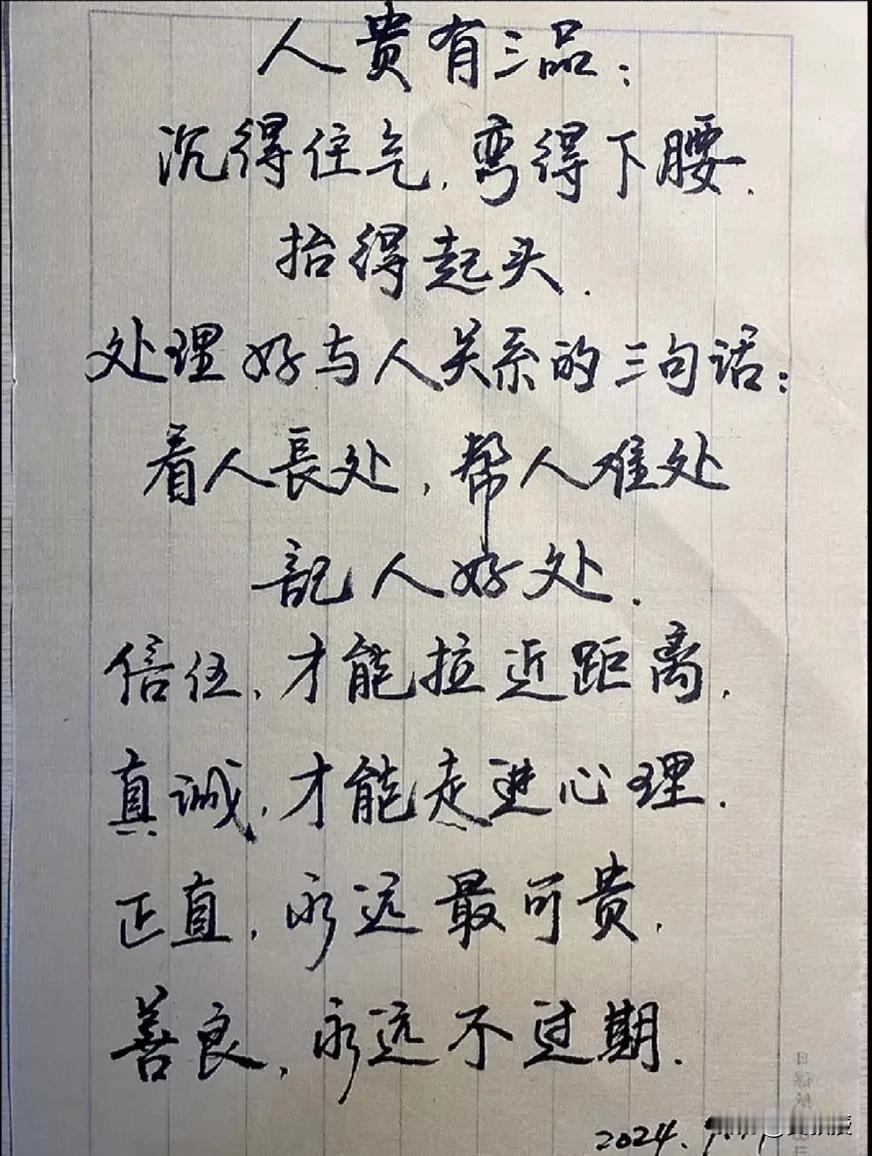 人贵有三品：
沉得住气，弯得下腰，
抬得起头．
处理好与人关系的三句话：
看人長处，帮人难处
記人好处．
信任，才能拉近距离，
真诚，才能走进心理．
正直，永远最可贵，
善良，永远不过期．
2024.